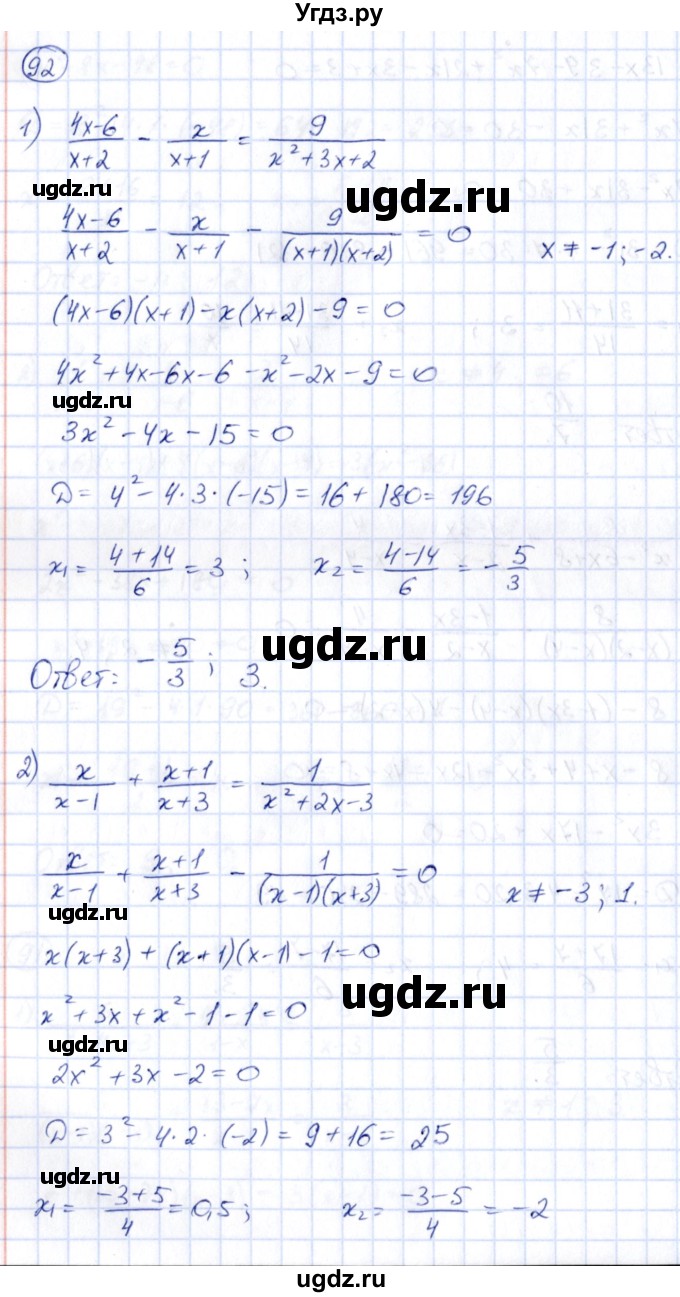 Угдз.ру
92
1) (4x-6)/(x+2) - x/(x+1) = 9/(x²+3x+2)
ugdz.ru ugdz.ru
(4x-6)/(x+2) - x/(x+1) - 9/((x+1)(x+2)) = 0 x ≠ -1; -2.
(4x-6)(x+1) - x(x+2) - 9 = 0
4x²+4x-6x-6-x²-2x-9=0
ugdz.ru ugdz.ru
3x²-4x-15=0
D = 4²-4·3·(-15) = 16+180 = 196
x₁ = (4+14)/6 = 3; x₂ = (4-14)/6 = -5/3
ugdz.ru ugdz.ru
Ответ: -5/3; 3.
2) x/(x-1) + (x+1)/(x+3) = 1/(x²+2x-3)
ugdz.ru ugdz.ru
x/(x-1) + (x+1)/(x+3) - 1/((x-1)(x+3)) = 0 x ≠ -3; 1.
ugdz.ru
x(x+3) + (x+1)(x-1) - 1 = 0
ugdz.ru
x²+3x+x²-1-1=0
ugdz.ru
2x²+3x-2=0
D = 3²-4·2·(-2) = 9+16 = 25
ugdz.ru ugdz.ru
x₁ = (-3+5)/4 = 0,5; x₂ = (-3-5)/4 = -2
ugdz.ru
ugdz.ru